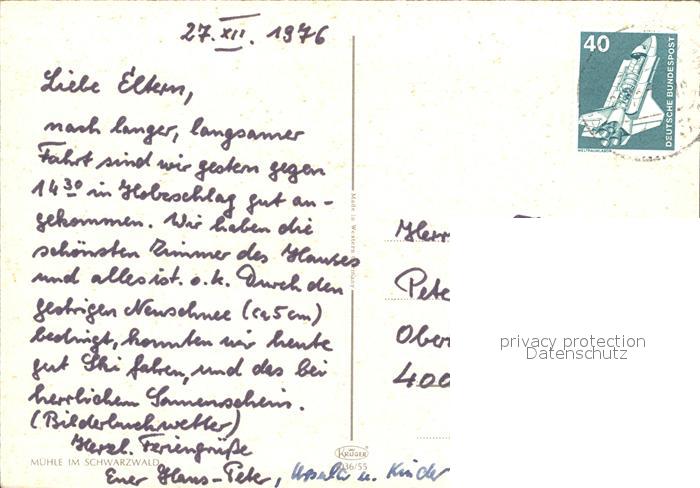 27. XII. 1976
Liebe Eltern,
nach langer, langsamer
Fahrt sind wir gestern gegen
14 30 in Hobeschlag gut an-
gekommen. Wir haben die
schönsten Zimmer des Hauses
und alles ist o.k. Durch den
gestrigen Neuschnee (ca 5 cm)
bedingt, konnten wir heute
gut Ski fahren, und das bei
herrlichem Sonnenschein.
(Bilderbuchwetter)
Herzl. Feriengrüße
Euer Hans-Peter, Ursula u. Kinder
MÜHLE IM SCHWARZWALD
KRÜGER
936/55
Made in Western Germany
40
DEUTSCHE BUNDESPOST
WELTRAUMLABOR
Herr
Pete
Ober
400
privacy protection
Datenschutz